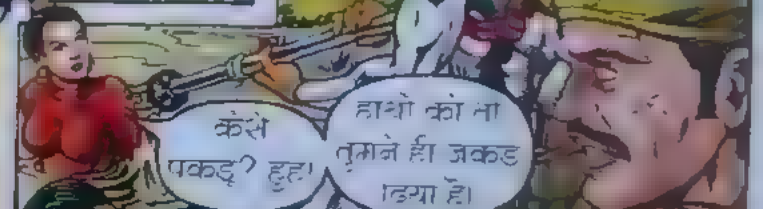 कैसे
पकड़ू? हुह।
हाथों को तो
तुमने ही जकड़
दिया है।